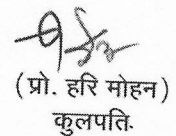 (प्रो. हरि मोहन)
कुलपति.